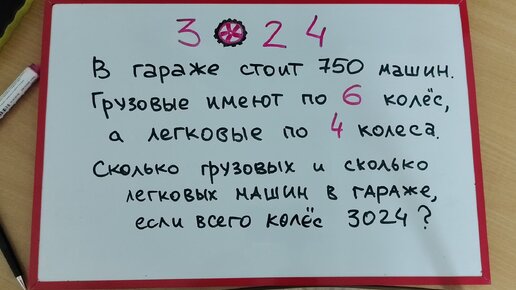 3024
В гараже стоит 750 машин.
Грузовые имеют по 6 колёс,
а легковые по 4 колеса.
Сколько грузовых и сколько
легковых машин в гараже,
если всего колёс 3024?